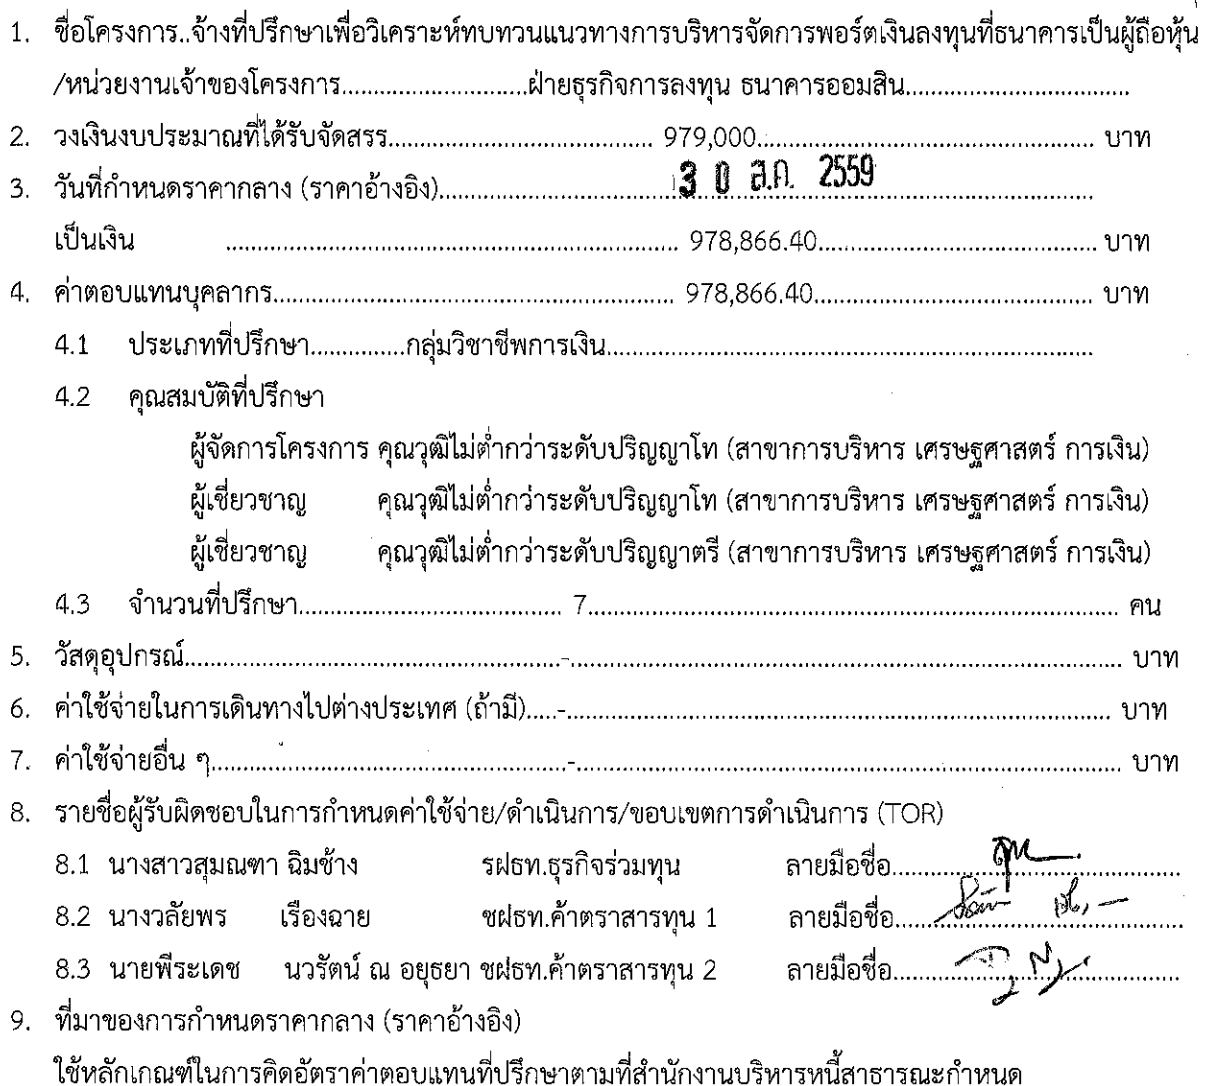 1. ชื่อโครงการ..จ้างที่ปรึกษาเพื่อวิเคราะห์ทบทวนแนวทางการบริหารจัดการพอร์ตเงินลงทุนที่ธนาคารเป็นผู้ถือหุ้น
/หน่วยงานเจ้าของโครงการ............................ฝ่ายธุรกิจการลงทุน ธนาคารออมสิน..................................
2. วงเงินงบประมาณที่ได้รับจัดสรร........................................ 979,000.................................................... บาท
3. วันที่กำหนดราคากลาง (ราคาอ้างอิง)....................................30 ส.ค. 2559....................................
เป็นเงิน ..................................................................... 978,866.40........................................... บาท
4. ค่าตอบแทนบุคลากร............................................................. 978,866.40........................................... บาท
4.1 ประเภทที่ปรึกษา...............กลุ่มวิชาชีพการเงิน..........................................................................
4.2 คุณสมบัติที่ปรึกษา
ผู้จัดการโครงการ คุณวุฒิไม่ต่ำกว่าระดับปริญญาโท (สาขาการบริหาร เศรษฐศาสตร์ การเงิน)
ผู้เชี่ยวชาญ คุณวุฒิไม่ต่ำกว่าระดับปริญญาโท (สาขาการบริหาร เศรษฐศาสตร์ การเงิน)
ผู้เชี่ยวชาญ คุณวุฒิไม่ต่ำกว่าระดับปริญญาตรี (สาขาการบริหาร เศรษฐศาสตร์ การเงิน)
4.3 จำนวนที่ปรึกษา........................................ 7................................................................................ คน
5. วัสดุอุปกรณ์.........................................................-.................................................................................... บาท
6. ค่าใช้จ่ายในการเดินทางไปต่างประเทศ (ถ้ามี).....-.................................................................................. บาท
7. ค่าใช้จ่ายอื่น ๆ......................................................-................................................................................... บาท
8. รายชื่อผู้รับผิดชอบในการกำหนดค่าใช้จ่าย/ดำเนินการ/ขอบเขตการดำเนินการ (TOR)
8.1 นางสาวสุมณฑา ฉิมช้าง รฝธท.ธุรกิจร่วมทุน ลายมือชื่อ............................................
8.2 นางวลัยพร เรืองฉาย ชฝธท.ค้าตราสารทุน 1 ลายมือชื่อ............................................
8.3 นายพีระเดช นวรัตน์ ณ อยุธยา ชฝธท.ค้าตราสารทุน 2 ลายมือชื่อ............................................
9. ที่มาของการกำหนดราคากลาง (ราคาอ้างอิง)
ใช้หลักเกณฑ์ในการคิดอัตราค่าตอบแทนที่ปรึกษาตามที่สำนักงานบริหารหนี้สาธารณะกำหนด